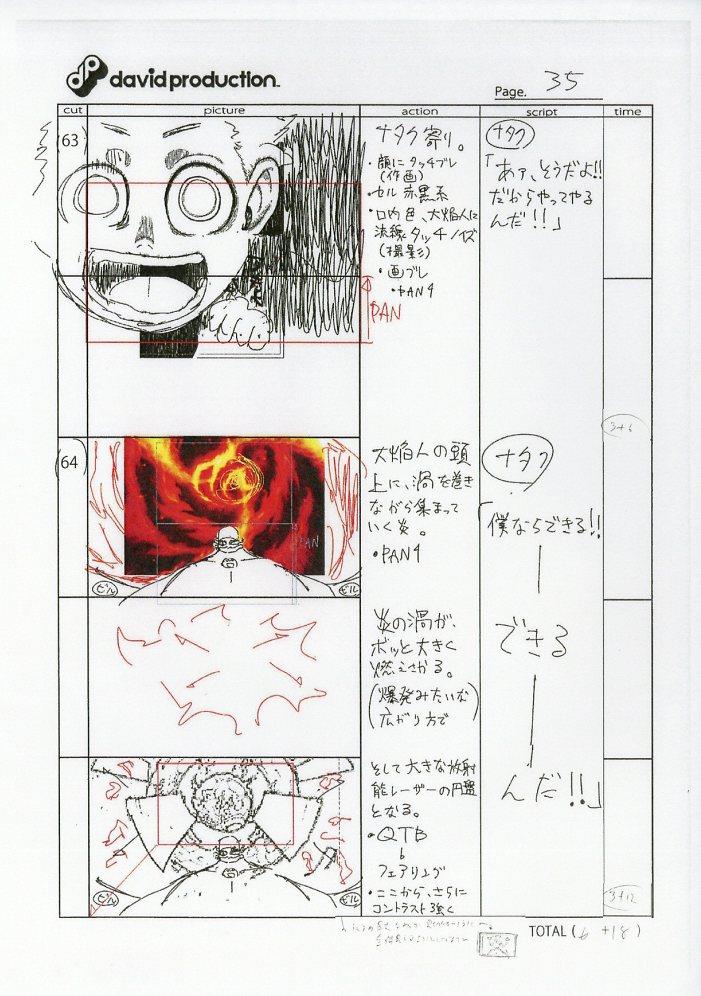 dp davidproduction
Page. 35
cut picture action script time
63
ナタク寄り。
・顔にタッチブレ
(作画)
・セル 赤黒系
・口内色、大焔人に
流線タッチノイズ
(撮影)
・画ブレ
・PAN↑
PAN
ナタク
「あァ、そうだよ!!
だからやってやる
んだ!!」
3+6
64
PAN
ビル
ビル
大焔人の頭
上に、渦を巻き
ながら集まって
いく炎。
・PAN↑
ナタク
「僕ならできる!!
炎の渦が、
ボッと大きく
燃えさかる。
(爆発みたいな
広がり方で)
できる
ビル
ビル
そして大きな放射
能レーザーの円盤
となる。
・QTB
フェアリング
・ここから、さらに
コントラスト強く
んだ!!」
3+12
TOTAL ( 6 +18 )